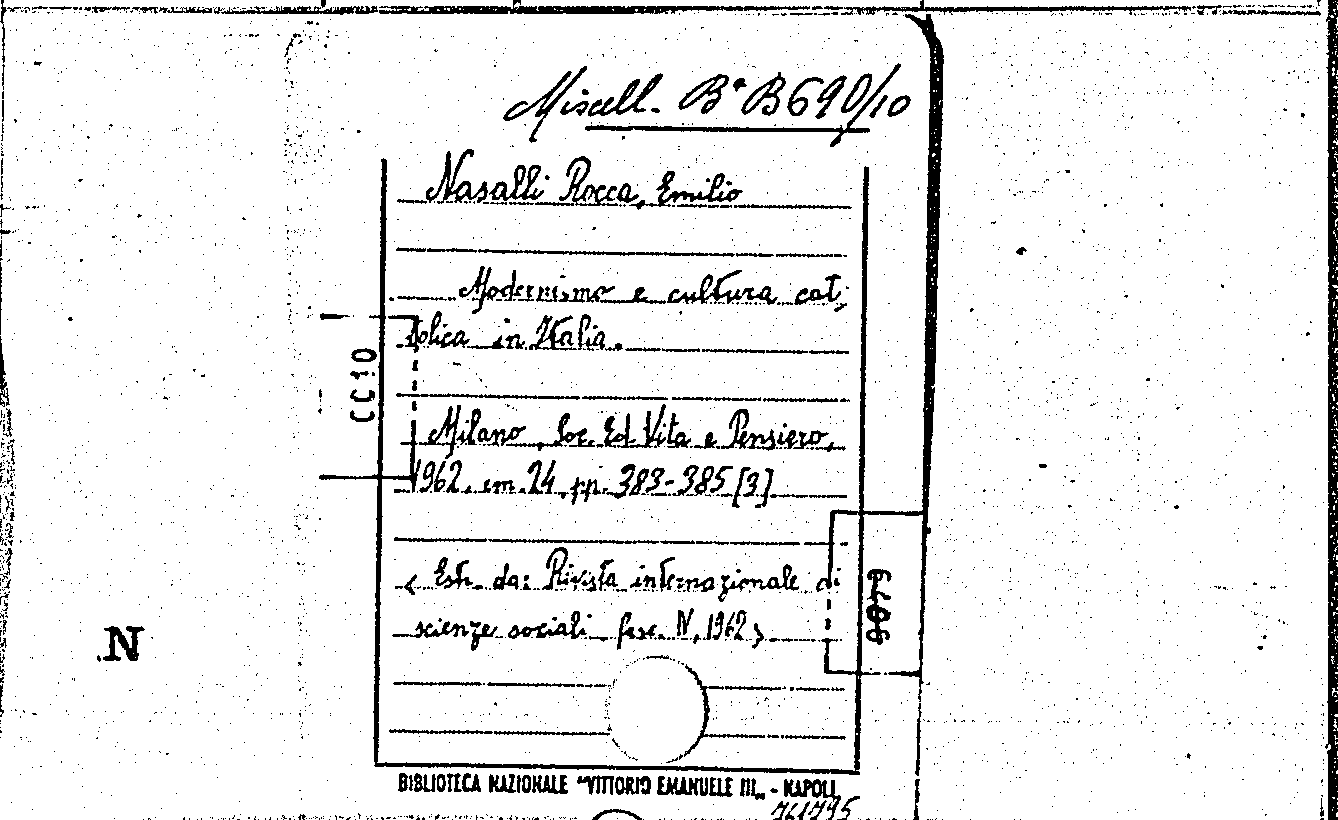 Miscell. Bª B690/10
Nasalli Rocca, Emilio
Modernismo e cultura cat,
tolica in Italia.
CC10
Milano, Soc. Ed. Vita e Pensiero,
1962. cm. 24. pp. 383-385 [3]
< Estr. da: Rivista internazionale di
scienze sociali fasc. IV, 1962 >
N
BIBLIOTECA NAZIONALE "VITTORIO EMANUELE III„ - NAPOLI
761795